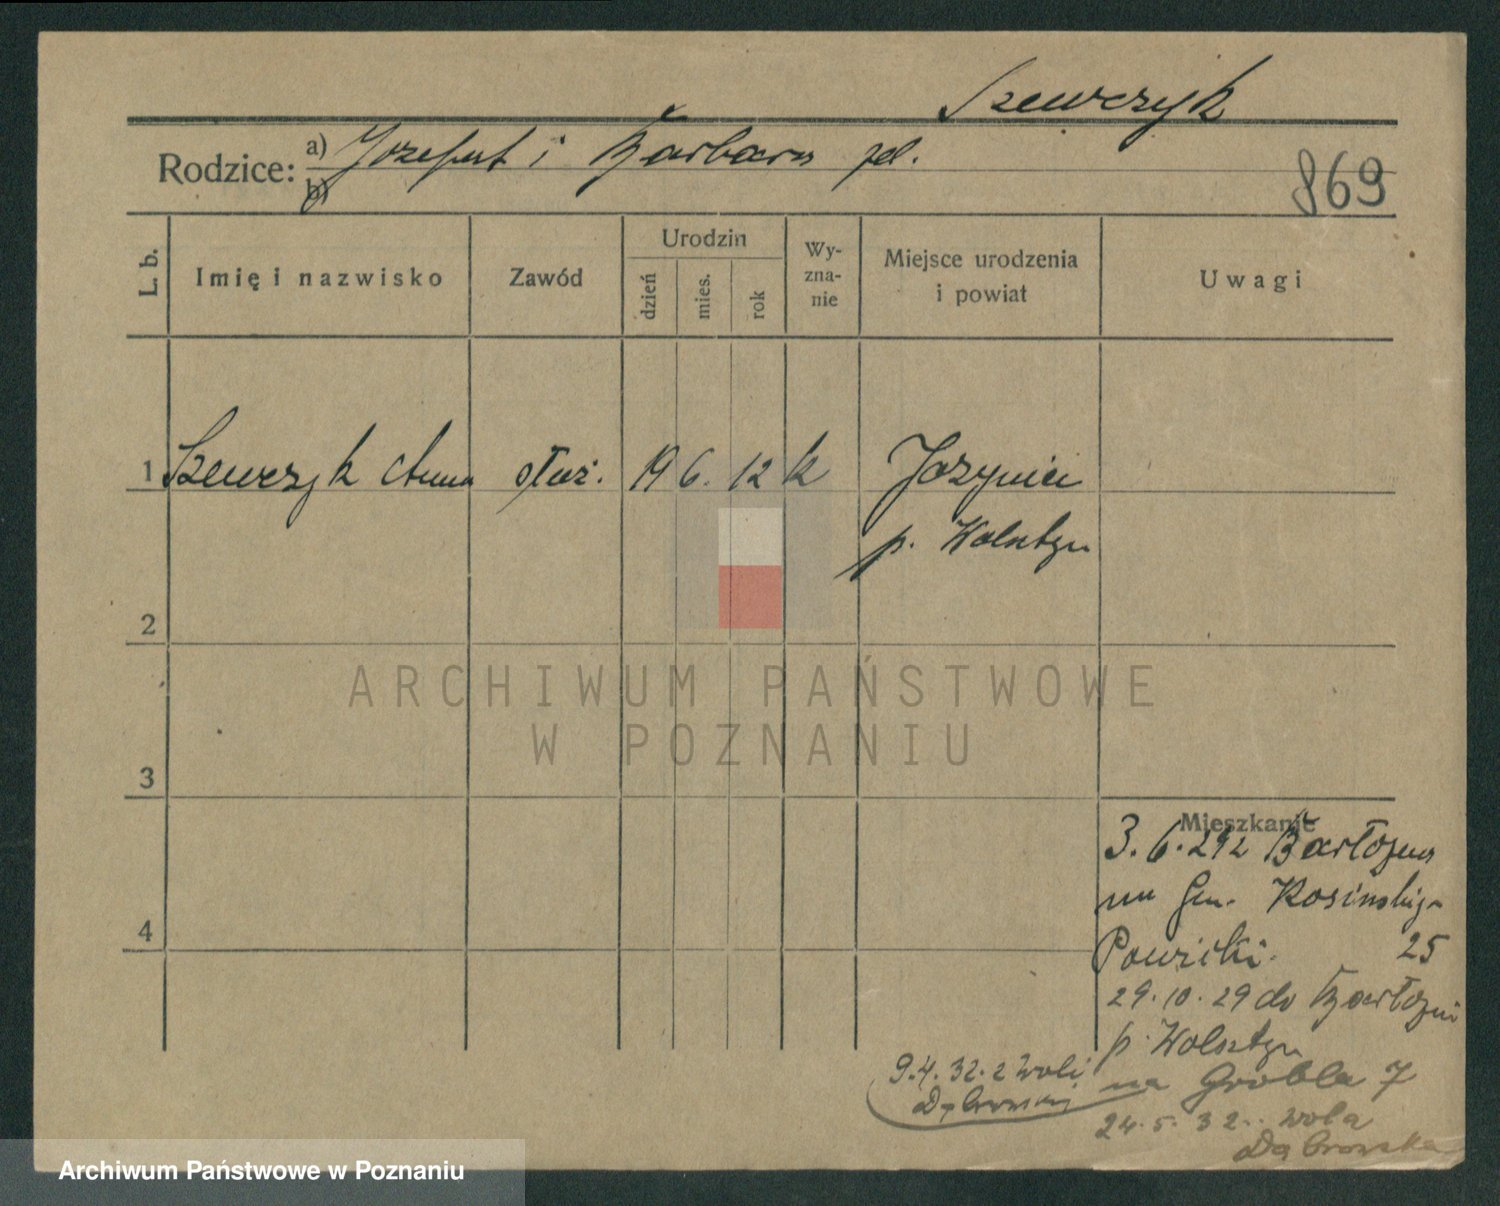 Szewczyk
Rodzice: a) Jozefat i Barbara
b)
869
L. b.
Imię i nazwisko
Zawód
Urodzin
dzień
mies.
rok
Wy-
zna-
nie
Miejsce urodzenia
i powiat
Uwagi
1 Szewczyk Anna służ. 19 6. 12 k
p. Wolsztyn
2
ARCHIWUM PAŃSTWOWE
W POZNANIU
3
Mieszkanie
3. 6. 29 z Barłożna
4
25
29. 10. 29 do Barłożni
p. Wolsztyn
9. 4. 32. z Woli
Dąbrowskiej na Grobla 7
24. 5. 32.. Wola
Dąbrowska
Archiwum Państwowe w Poznaniu